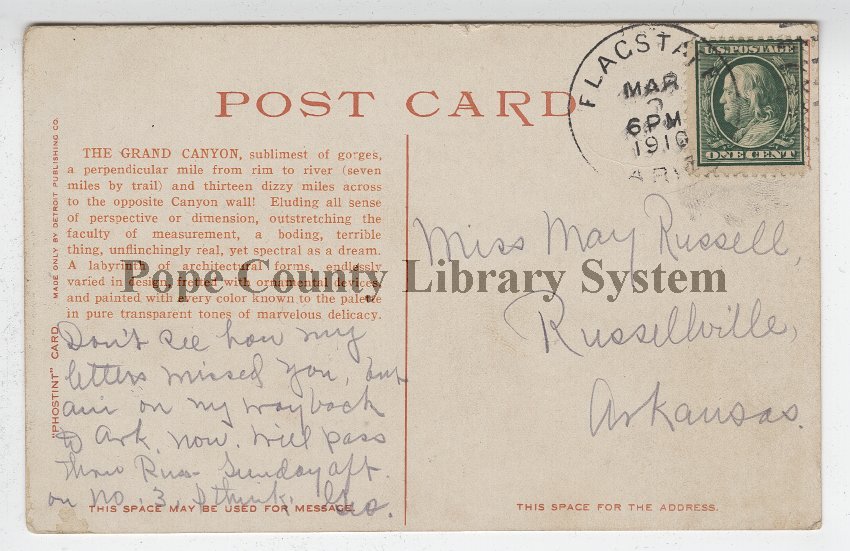 POST CARD
FLAGSTAFF
MAR
6PM
1910
ARIZ
U.S. POSTAGE
ONE CENT
"PHOSTINT" CARD MADE ONLY BY DETROIT PUBLISHING CO.
THE GRAND CANYON, sublimest of gorges,
a perpendicular mile from rim to river (seven
miles by trail) and thirteen dizzy miles across
to the opposite Canyon wall! Eluding all sense
of perspective or dimension, outstretching the
faculty of measurement, a boding, terrible
thing, unflinchingly real, yet spectral as a dream.
A labyrinth of architectural forms, endlessly
varied in design, fretted with ornamental devices,
and painted with every color known to the palette
in pure transparent tones of marvelous delicacy.
Pope County Library System
Don't see how my
letters missed you, but
am on my way back
to Ark. now. Will pass
thro Russ- Sunday aft.
on no. 3, I think. Geo.
THIS SPACE MAY BE USED FOR MESSAGE.
Miss May Russell,
Russellville,
Arkansas.
THIS SPACE FOR THE ADDRESS.